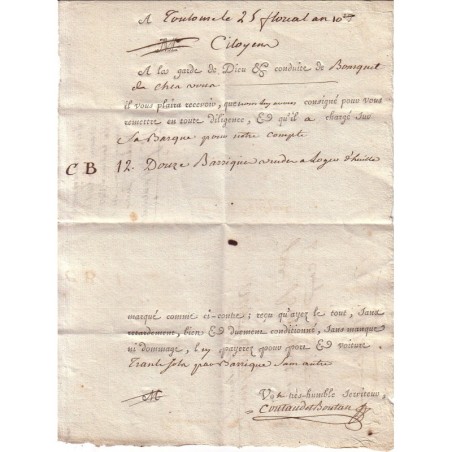 A Toulouse le 25 floreal an 10
Citoyens
A la garde de Dieu & conduite de Bousquet
il vous plaira recevoir, que nous luy avons consigné pour vous
remettre en toute diligence, & qu'il a chargé sur
Sa Barque pour notre compte
CB 12. Douze Barriques vuides a Loger d'huille
marqué comme ci-contre; reçu qu'ayez le tout, sans
retardement, bien & duement conditionné, sans manque
ni dommage, l'en payerez pour port & voiture
Trente Sols par Barrique Sans autre
Votre très-humble serviteur,